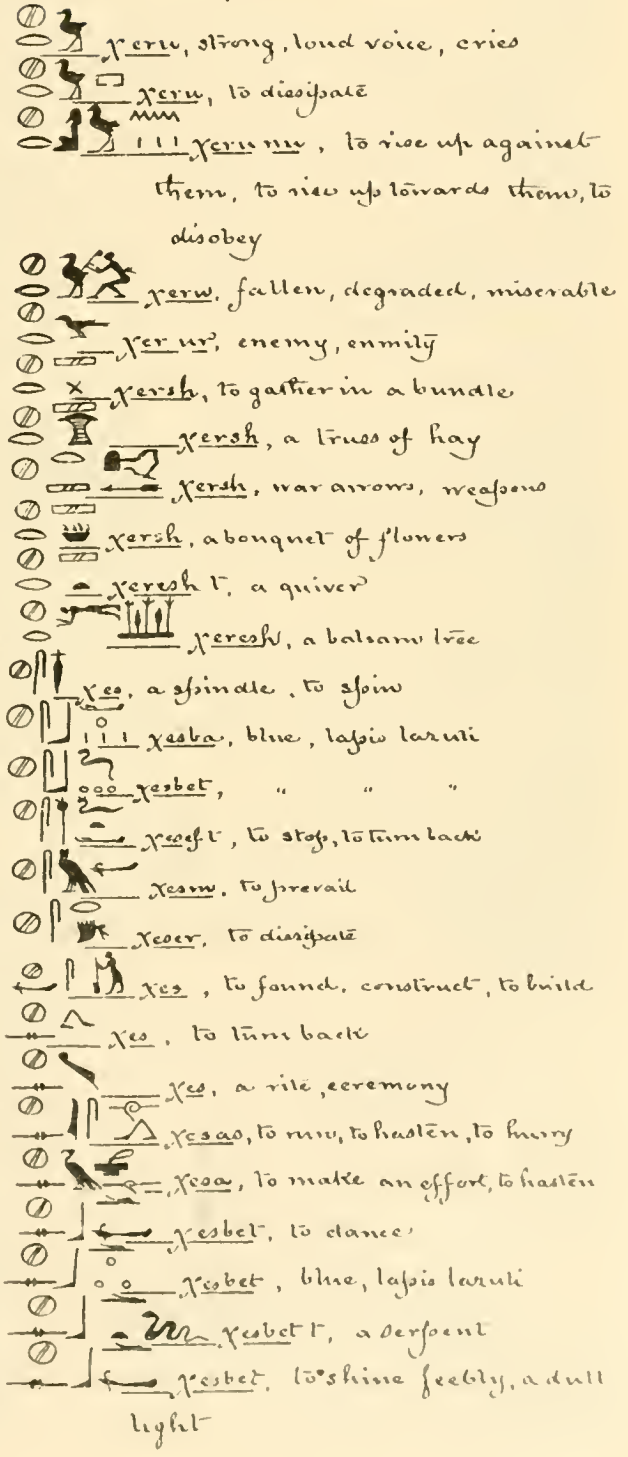 χeru, strong, loud voice, cries
χeru, to dissipate
χeru nu, to rise up against
them, to rise up towards them, to
disobey
χeru, fallen, degraded, miserable
χer ur, enemy, enmity
χersh, to gather in a bundle
χersh, a truss of hay
χersh, war arrows, weapons
χersh, a bouquet of flowers
χeresh t, a quiver
χeresh, a balsam tree
χes, a spindle, to spin
χesba, blue, lapis lazuli
χesbet, " " "
χesef t, to stop, to turn back
χesm, to prevail
χeser, to dissipate
χes, to found, construct, to build
χes, to turn back
χes, a rite, ceremony
χesas, to run, to hasten, to hurry
χesa, to make an effort, to hasten
χesbet, to dance
χesbet, blue, lapis lazuli
χesbet t, a serpent
χesbet, to shine feebly, a dull
light